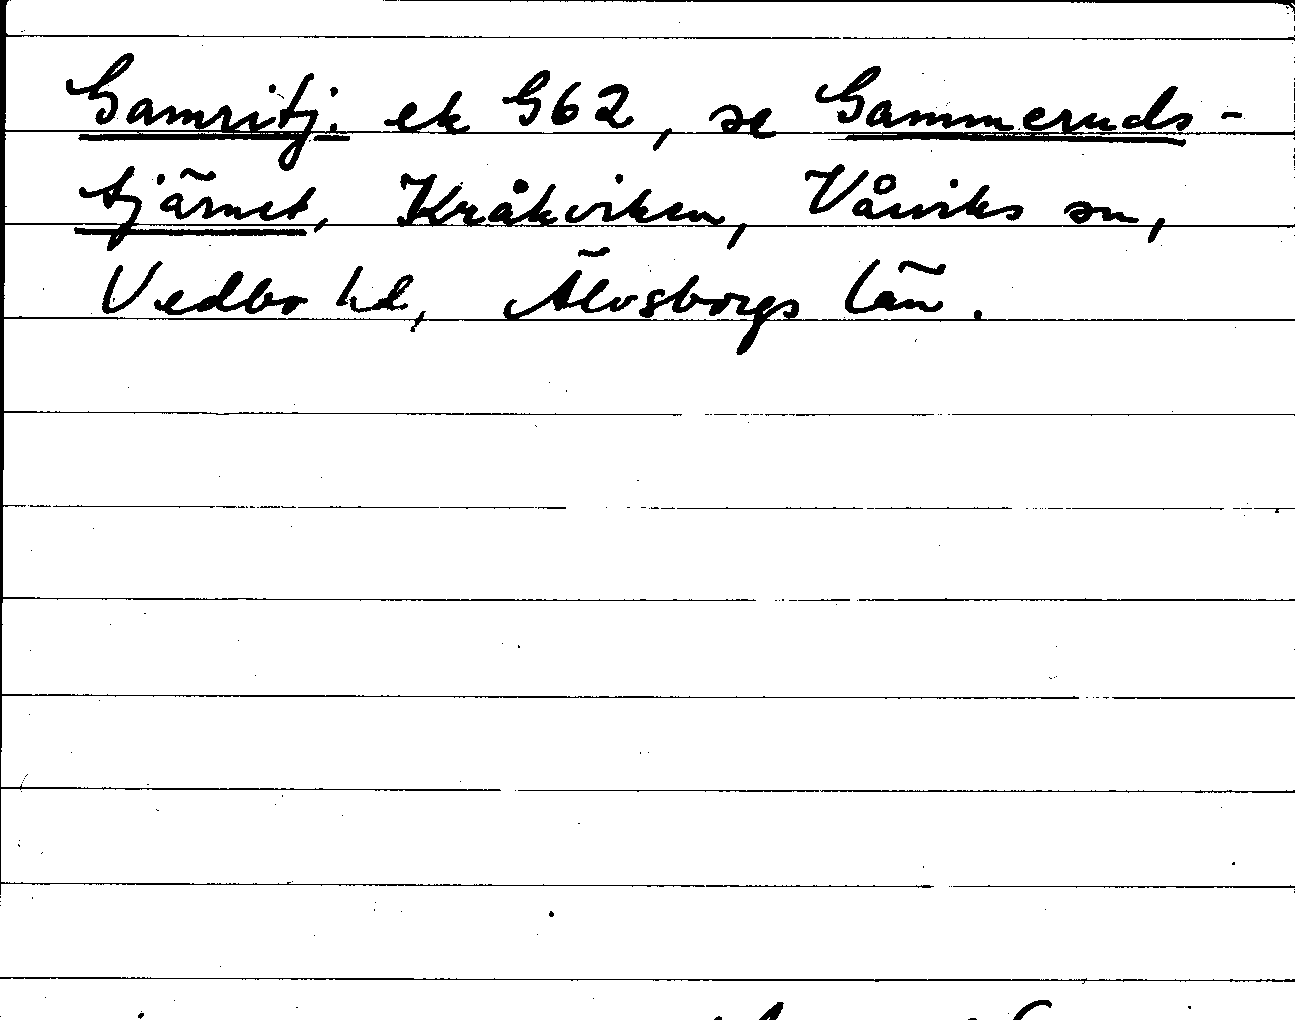 Gamritj. ek G62, se Gammeruds-
tjärnet, Kråkviken, Vårviks sn,
Vedbo hd, Älvsborgs län.